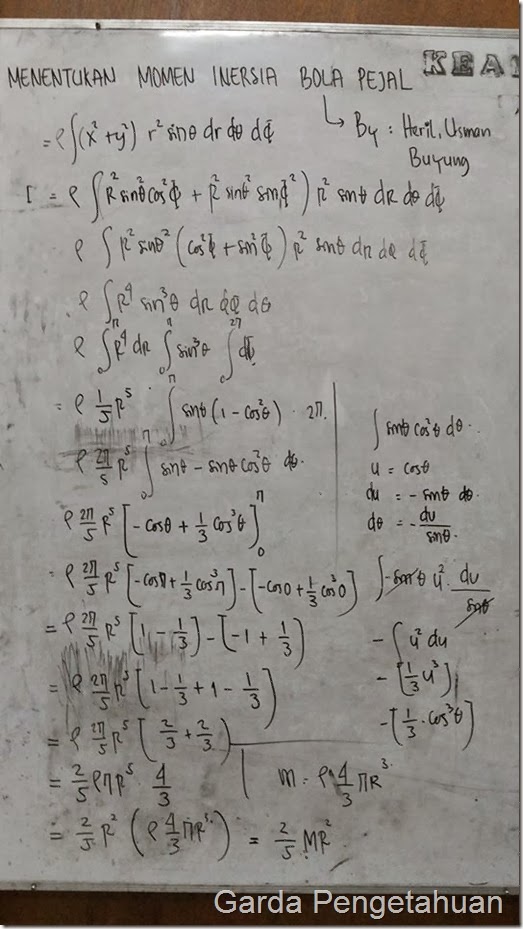 KEA
MENENTUKAN MOMEN INERSIA BOLA PEJAL
↳ By : Heril, Usman
Buyung
= ρ∫(x²+y²) r² sinθ dr dθ dΦ
I = ρ ∫ R² sin²θ cos²Φ + R² sinθ² sinΦ²) R² sinθ dR dθ dΦ
ρ ∫ R² sinθ² (cos²Φ + sin²Φ) R² sinθ dR dθ dΦ
ρ ∫ R⁴ sin³θ dR dΦ dθ
ρ ∫ R⁴ dR ∫₀^π sin³θ ∫₀^2π dΦ
= ρ 1/5 R⁵ ∫₀^π sinθ (1 - cos²θ) · 2π.
ρ 2π/5 R⁵ ∫₀^π sinθ - sinθ cos²θ dθ.
ρ 2π/5 R⁵ [-cosθ + 1/3 cos³θ]₀^π
= ρ 2π/5 R⁵ [-cosπ + 1/3 cos³π] - [-cos0 + 1/3 cos³0]
= ρ 2π/5 R⁵ [1 - 1/3) - [-1 + 1/3)
= ρ 2π/5 R⁵ [1 - 1/3 + 1 - 1/3]
= ρ 2π/5 R⁵ [2/3 + 2/3)
= 2/5 ρπR⁵ · 4/3
= 2/5 R² (ρ 4/3 πR³) = 2/5 MR²
∫ sinθ cos²θ dθ.
u = cosθ
du = -sinθ dθ.
dθ = - du/sinθ.
∫ -sinθ u² · du/sinθ
- ∫ u² du
- [1/3 u³]
- [1/3 · cos³θ]
m = ρ 4/3 πR³.
Garda Pengetahuan